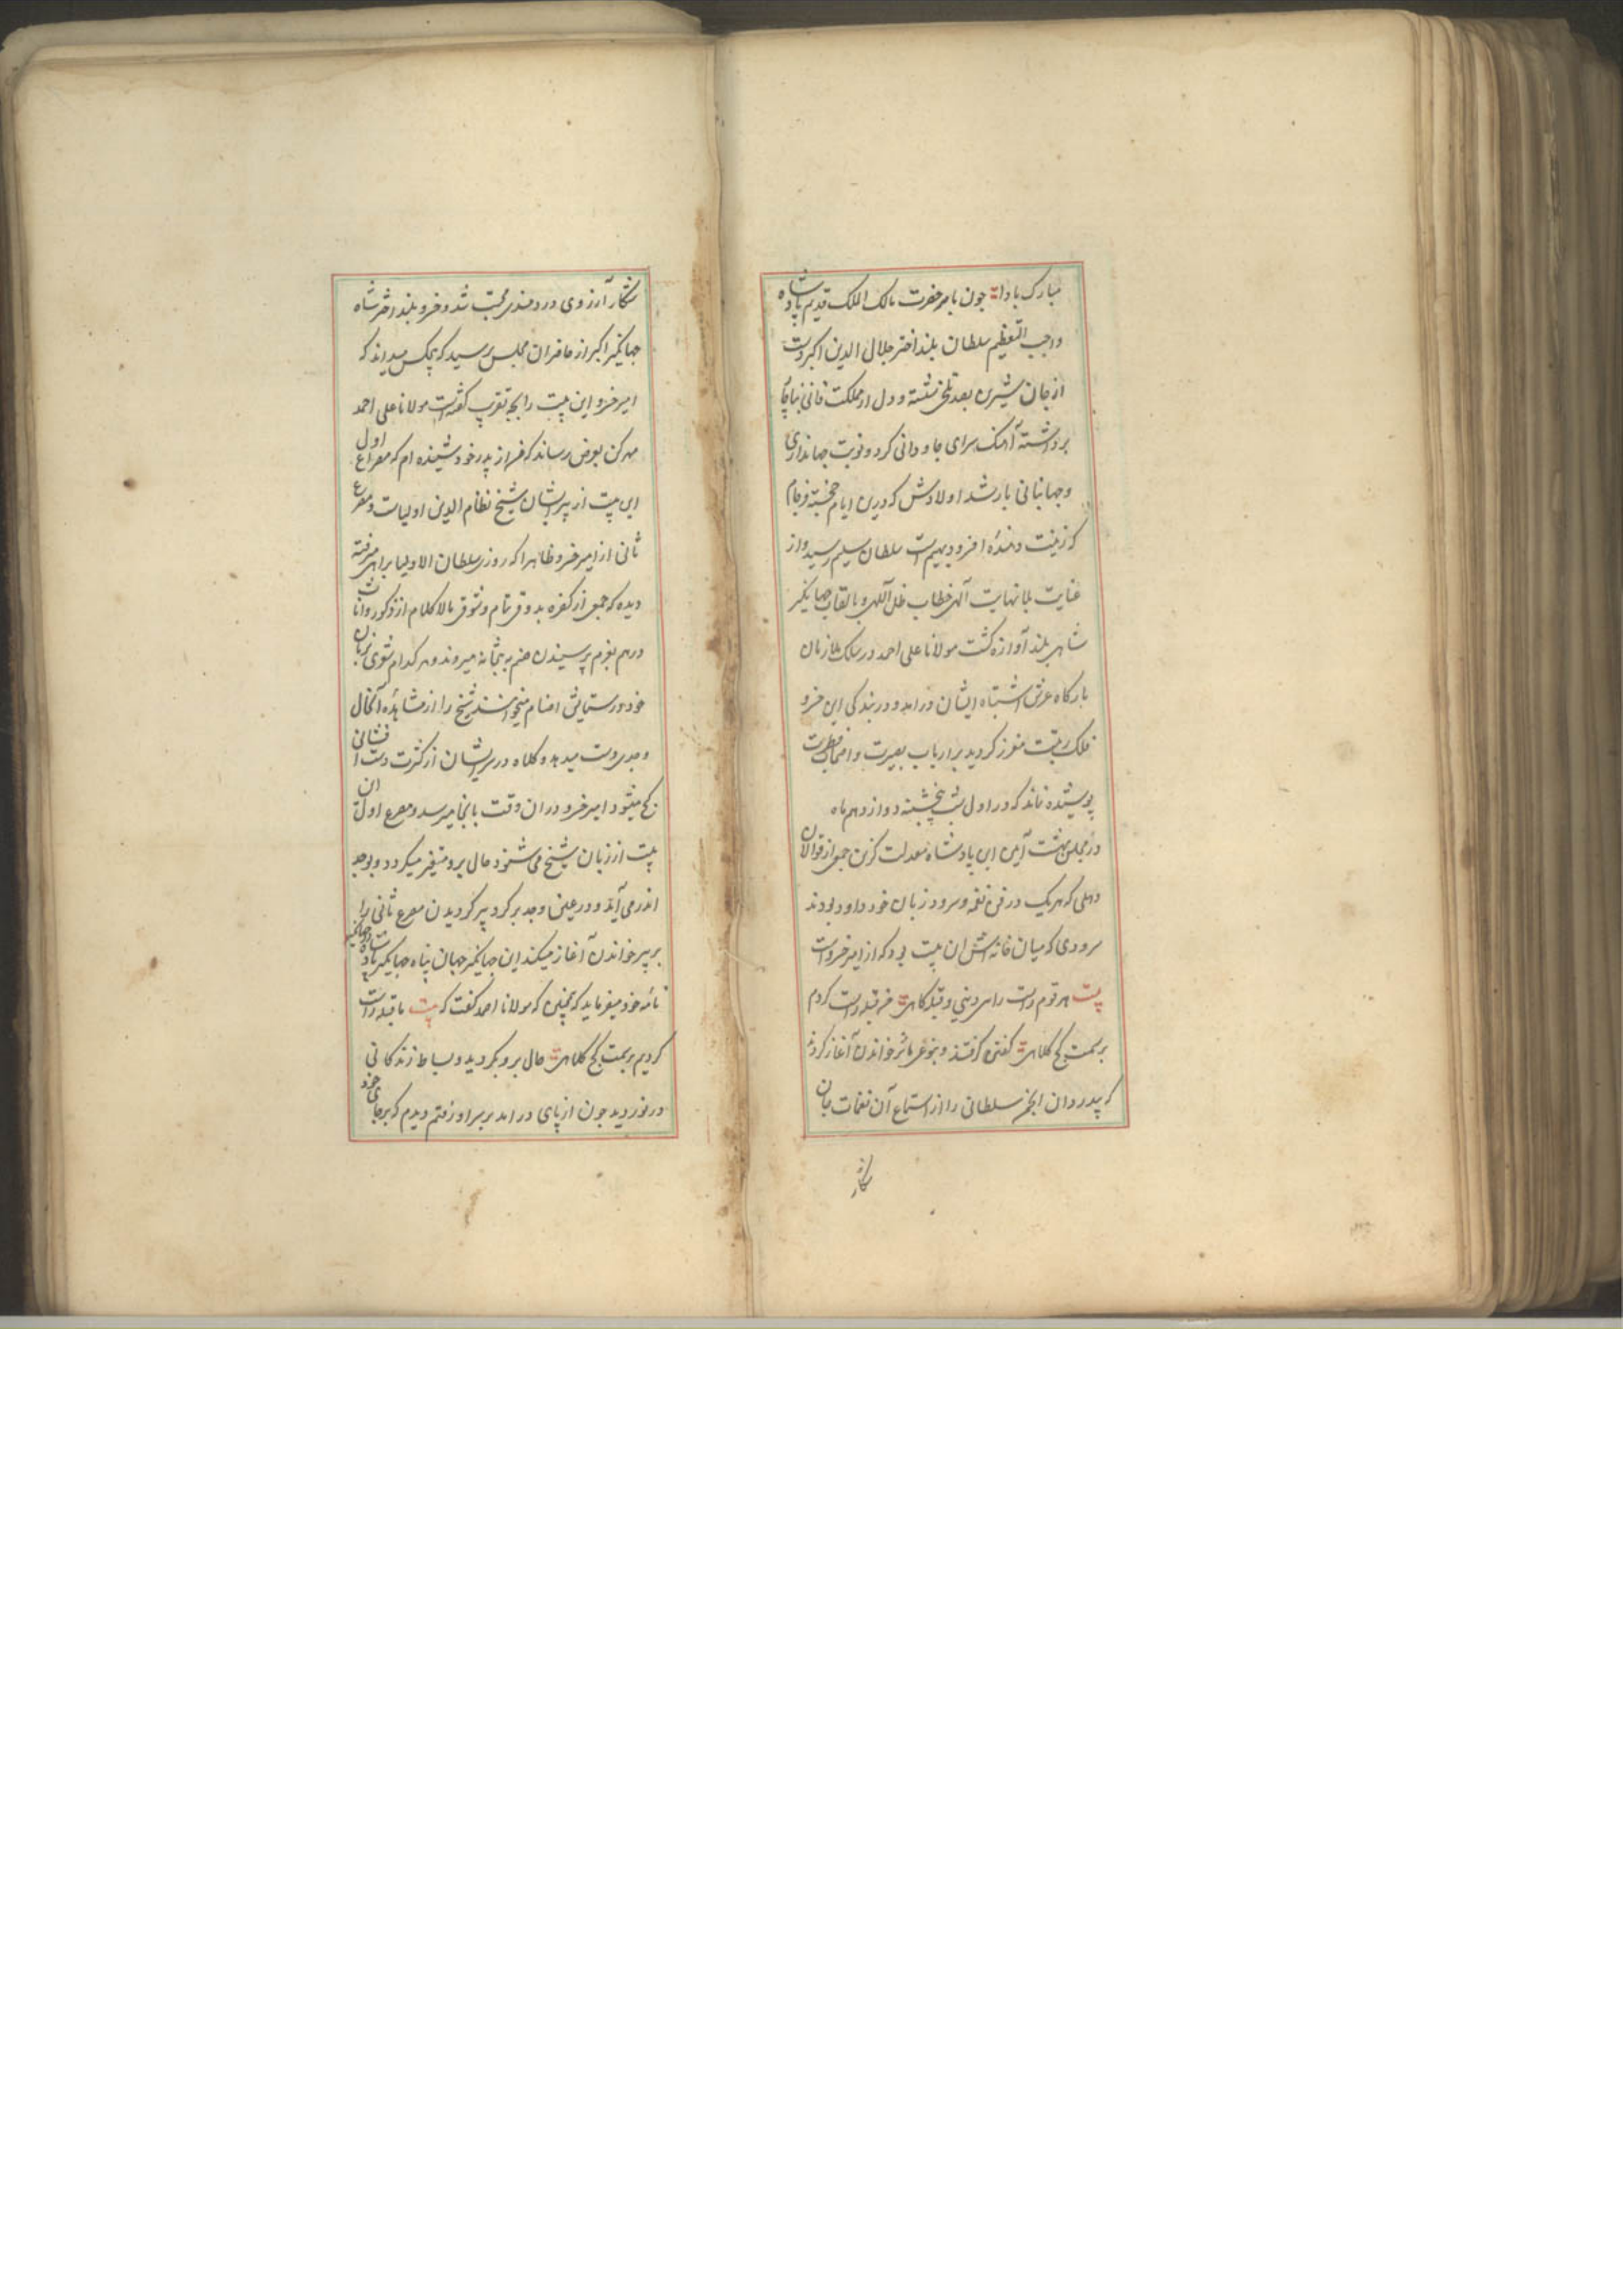 مبارک بادا چون بامر حضرت مالک الملک قدیم پادشاه
واجب التعظیم سلطان بلند اختر جلال الدین اکبر دست
از جان شیرین بعد تلخی شسته و دل از مملکت فانی
برداشته آهنگ سرای جاودانی کرد و نوبت جهانداری
و جهانبانی بارشد اولادش که درین ایام خجسته فرجام
که زینت دهندهٔ افرو دیهیم است سلطان سلیم رسید و از
عنایت بلا نهایت آلهی خطاب ظل اللهی و بالقاب جهانگیر
شاهی بلند آوازه کشت مولانا علی احمد در سلک ملازمان
بارکاه عرش اشتباه ایشان درامد و در بندکی این خسرو
فلک رتبت معزز کردید بر ارباب بصیرت و اصحاب فطرت
پوشیده نماند که در اول شب پنجشبنه دوازدهم ماه
در مجلس بهشت آیین این پادشاه معدلت کزین جمعی از قوالان
دهلی که هر یک در فن نغمه و سرود زبان خود داود بودند
سرودی که میان خانه اش ان بیت بود که از امیر خسرو است
بیت هر قوم راست راهی دینی و قبله کاهی من قبله راست کردم
بر سمت کج کلاهی کفتن کرفتند و بنوعی خواندن آغاز کردند
که پدردان انجمن سلطانی را از استماع آن نغمات جان
شکار
شکار آرزوی دردمندی محبت شد و خسرو بلند اختر شاه
جهانکیر اکبر از حاضران مجلس پرسید که هیچکس میداند که
امیر خسرو این بیت را بچه تقریب کفته است مولانا علی احمد
مهرکن بعرض رساند که من از پدر خود شنیده ام که مصراع اول
این بیت از پیر ایشان شیخ نظام الدین اولیاست و مصرع
ثانی از امیر خسرو ظاهرا که روزی سلطان الاولیا براهی میرفته
دیده که جمعی از کفره بذوق تمام و شوق مالاکلام از ذکور و اناث
درهم بعزم پرسیدن صنم به بتخانه میروند و هر کدام شوری بزبان
خود در ستایش اصنام میخوانند شیخ را از مشاهدهٔ آنحال
وجدی دست میدهد و کلاه در سر ایشان از کثرت دست افشانی
کج میشود امیر خسرو در ان وقت بانجا میرسد و مصرع اول ان
بیت از زبان شیخ می شنود حال برو متغیر میکردد و بوجد
اندر می آید و در عین وجد بر کرد پیر کردیدن مصرع ثانی را
بر پیر خواندن آغاز میکند این جهانکیر جهان پناه جهانکیر پادشاه در جهانکیر
نامه خود میفرماید که همچنین که مولانا احمد کفت که بیت ما قبله راست
کردیم بر سمت کج کلاهی حال برو بکردید و بساط زندکانی
در نوردید چون از پای درامد بر سر او رفتم دیدم که برجای خود